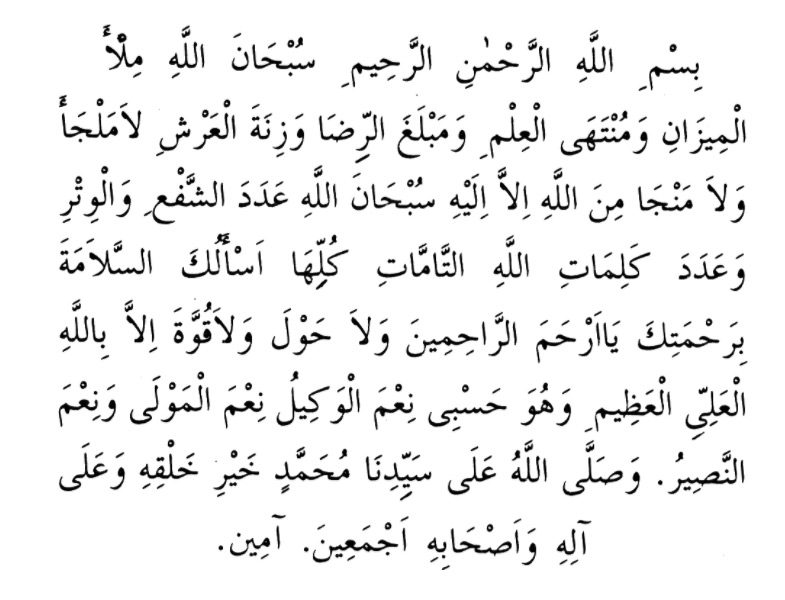 بِسْمِ اللَّهِ الرَّحْمٰنِ الرَّحِيمِ سُبْحَانَ اللَّهِ مِلْأَ
الْمِيزَانِ وَمُنْتَهَى الْعِلْمِ وَمَبْلَغَ الرِّضَا وَزِنَةَ الْعَرْشِ لاَمَلْجَأَ
وَلاَ مَنْجَا مِنَ اللَّهِ اِلاَّ اِلَيْهِ سُبْحَانَ اللَّهِ عَدَدَ الشَّفْعِ وَالْوِتْرِ
وَعَدَدَ كَلِمَاتِ اللَّهِ التَّامَّاتِ كُلِّهَا اَسْأَلُكَ السَّلاَمَةَ
بِرَحْمَتِكَ يَااَرْحَمَ الرَّاحِمِينَ وَلاَ حَوْلَ وَلاَقُوَّةَ اِلاَّ بِاللَّهِ
الْعَلِىِّ الْعَظِيمِ وَهُوَ حَسْبِى نِعْمَ الْوَكِيلُ نِعْمَ الْمَوْلَى وَنِعْمَ
النَّصِيرُ. وَصَلَّى اللَّهُ عَلَى سَيِّدِنَا مُحَمَّدٍ خَيْرِ خَلْقِهِ وَعَلَى
آلِهِ وَاَصْحَابِهِ اَجْمَعِينَ. آمِين.